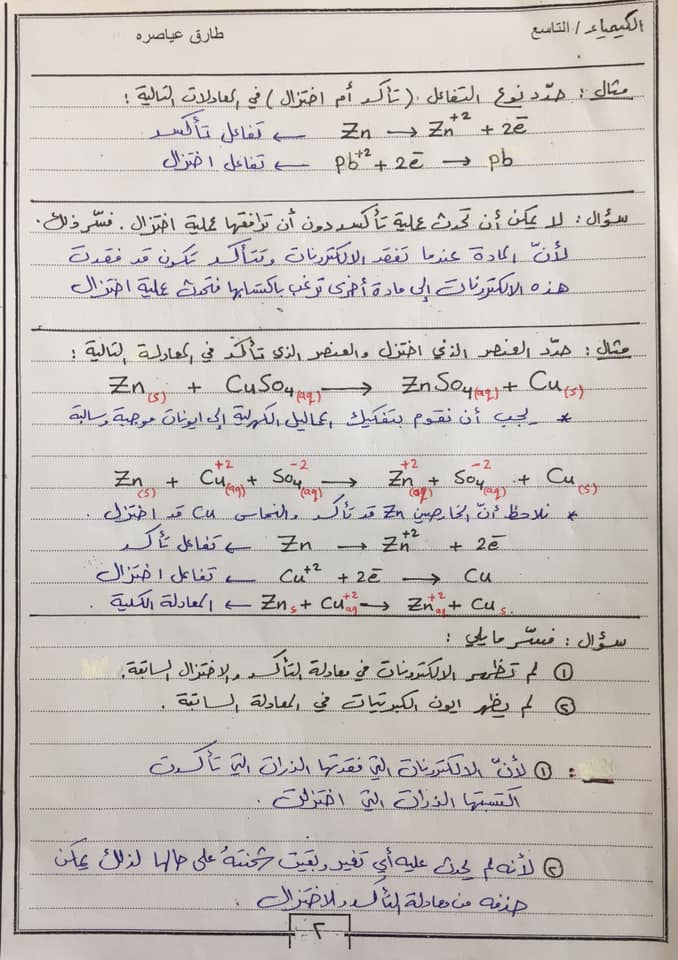 الكيمياء / التاسع
طارق عياصره
مثال : حدّد نوع التفاعل (تأكسد أم اختزال) في المعادلات التالية :
Zn → Zn+2 + 2e̅ ← تفاعل تأكسد
Pb+2 + 2e̅ → Pb ← تفاعل اختزال
سؤال : لا يمكن أن تحدث عملية تأكسد دون أن ترافقها عملية اختزال . فسّر ذلك .
لأنّ المادة عندما تفقد الالكترونات وتتأكسد تكون قد فقدت
هذه الالكترونات إلى مادة أخرى ترغب باكتسابها فتحدث عملية اختزال
مثال : حدّد العنصر الذي اختزل والعنصر الذي تأكسد في المعادلة التالية :
Zn(s) + CuSo4(aq) → ZnSo4(aq) + Cu(s)
* يجب أن نقوم بتفكيك المحاليل الكهرلية إلى ايونات موجبة وسالبة
Zn(s) + Cu+2(aq) + So4-2(aq) → Zn+2(aq) + So4-2(aq) + Cu(s)
* نلاحظ أنّ الخارصين Zn قد تأكسد والنحاس Cu قد اختزل .
Zn → Zn+2 + 2e̅ ← تفاعل تأكسد
Cu+2 + 2e̅ → Cu ← تفاعل اختزال
Zns + Cu+2aq → Zn+2aq + Cus ← المعادلة الكلية .
سؤال : فسّر ما يلي :
① لم تظهر الالكترونات في معادلة التأكسد والاختزال السابقة .
② لم يظهر ايون الكبريتات في المعادلة السابقة .
: ① لأنّ الالكترونات التي فقدتها الذرات التي تأكسدت
اكتسبتها الذرات التي اختزلت .
② لأنه لم يحدث عليه أي تغير وبقيت شحنتهُ على حالها لذلك يمكن
حذفه من معادلة التأكسد والاختزال .
٢